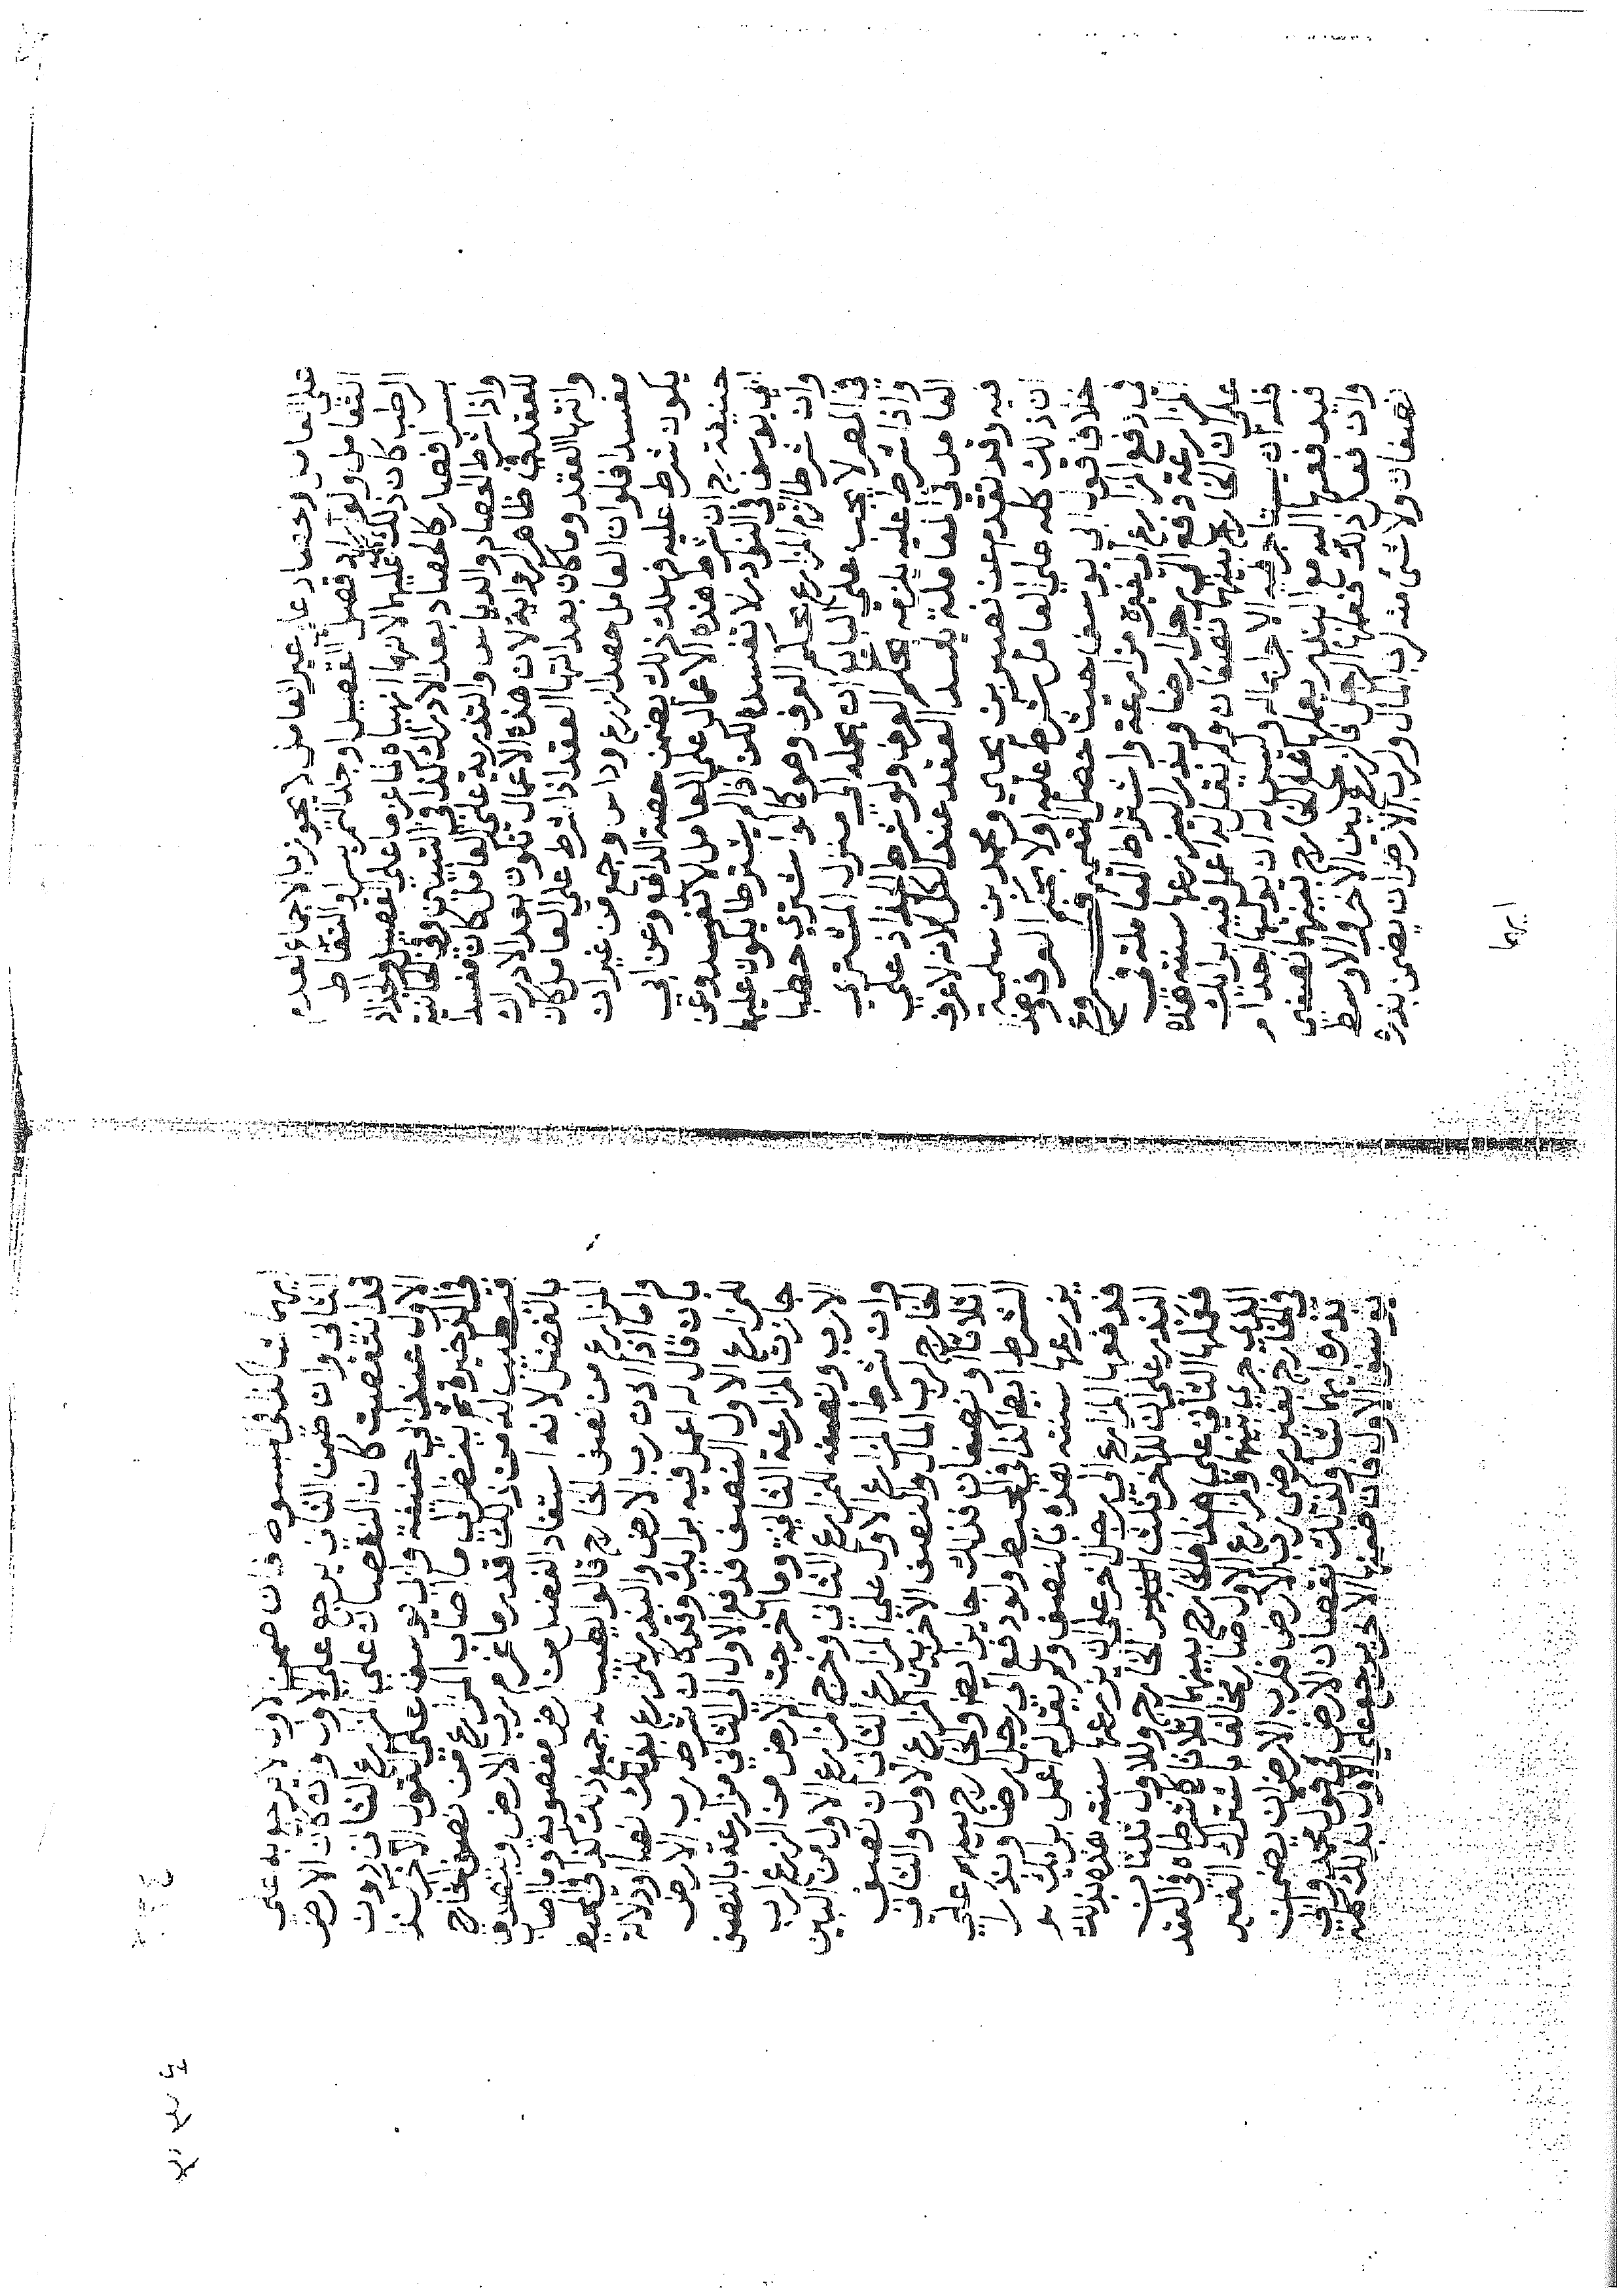 على العامل او حصاد على غير العامل لا يجوز بالاجماع لعدم
التعامل ولو اراد فصل القصيل او جذ التمر بسرا والتقاط
الرطب كان ذلك كله عليهما لانهما انهياه لما عزما على القصيل والجذاذ
بسرا فصار كالحصاد بعد الادراك كذا في التبيين وفي الخانية
واذا شرط الحصاد والدياس والتذرية على العامل كان مفسدا
للعقد في ظاهر الرواية لان هذه الاعمال تكون بعد الادراك
وانتها العقد وما كان بعد انتها العقد اذا شرط على العامل كان
مفسدا فلو ان العامل حصد الزرع وداس وجمع من غير ان
يكون شرط عليه فهلك ذلك يضمن حصة الدافع وعن ابي
حنيفة رح ان شرط هذه الاعمال على العامل لا تفسد وعن
ابي يوسف في النوادر لا تفسد لكن اذا لم يشترطا يكون عليهما
وان شرطا لزم المزارع بحكم العرف وهو كما لو اشترى حطبا
في المصر لا يجب على البايع ان يحمله الى منزل المشتري
واذا شرط عليه يلزمه بحكم العرف ولو شرط الجذاذ على
العامل في المعاملة يفسد العقد عند الكل لانه لا عرف
فيه وقد تقدم عن نصير بن يحيى ومحمد بن سلمة
ان ذلك كله على العامل شرط عليه او لا بحكم العرف وهذا
خلاف قول ابي يوسف حيث حصل القصيل فرع
في دفع المزارع الى غيره مزارعة واشتراط المعاملة في
المزارعة دفع الى رجل ارضا وبذرا ليزرعها سنته هذه
على ان الخارج بينهما نصفان ولم يقل له اعمل فيه برايك
فله ان يستاجر فيه الاجرا بماله وليس له ان يوليها احدا
فيدفعها اليه مع البذر يعملها على ان الخارج بينهما نصفين
وان فعل ذلك فعملها الرجل فالزرع بين الاخر والاوسط
نصفان ولا شئ منه لرب المال ولرب الارض ان يضمن بذره
ايهما
ايهما شاء كذا في المبسوط فان ضمن الاول لا يرجع به على
الثاني وان ضمن الثاني يرجع على الاول وان كان الارض
قد انتقصت كان النقصان على المزارع الثاني دون
الاول عند ابي حنيفة وابي يوسف على القول الاخر كذا
في الذخيرة ثم ينظر الى ما اصاب المزارع من نصف الخارج
فيطيب له من ذلك قدر ما غرم لرب الارض ويتصدق
بالفضل لانه استفاد الفضل من ارض مغصوبة وما اصاب
المزارع من نصف الخارج قالوا يطيب له جميع ذلك كذا في المحيط
واما اذا اذن رب الارض والبذر للمزارع بذلك نصا او دلالة
بان قال له اعمل فيه برايك وقد كان شرط رب الارض
للمزارع الاول النصف فدفع الاول الى الثاني مزارعة بالنصف
جازت المزارعة الثانية وما اخرجت الارض من الزرع لرب
الارض ونصفه للمزارع الثاني وخرج المزارع الاول من البين
وان شرط المزارع الاول على المزارع الثاني ان نصف
الخارج لرب المال والنصف الاخر بين المزارع الاول والثاني
اثلاثا او نصفان فذلك جايز ايضا والخارج بينهم على
الشرط ايضا كذا في المحيط ولو دفع الى رجل ارضا وبذرا
يزرعها سنته هذه بالنصف ولم يقل له اعمل برايك
فدفعها المزارع الى رجل اخر على ان يزرعها سنته هذه بذلك
البذر على ان للاخر ثلث الخارج وللاول ثلثان
فعملها الثاني على هذا فالخارج بينهما اثلاثا كما شرطاه في العقد
الذي جرى بينهما والمزارع الاول صار مخالفا باشتراك الغير
في الخارج بغير رضى رب الارض فلرب الارض ان يضمن
بذره ايهما شاء وكذلك نقصان الارض في قول محمد وابي
يوسف الاول فان ضمنها الاخر رجع على الاول بذلك كله